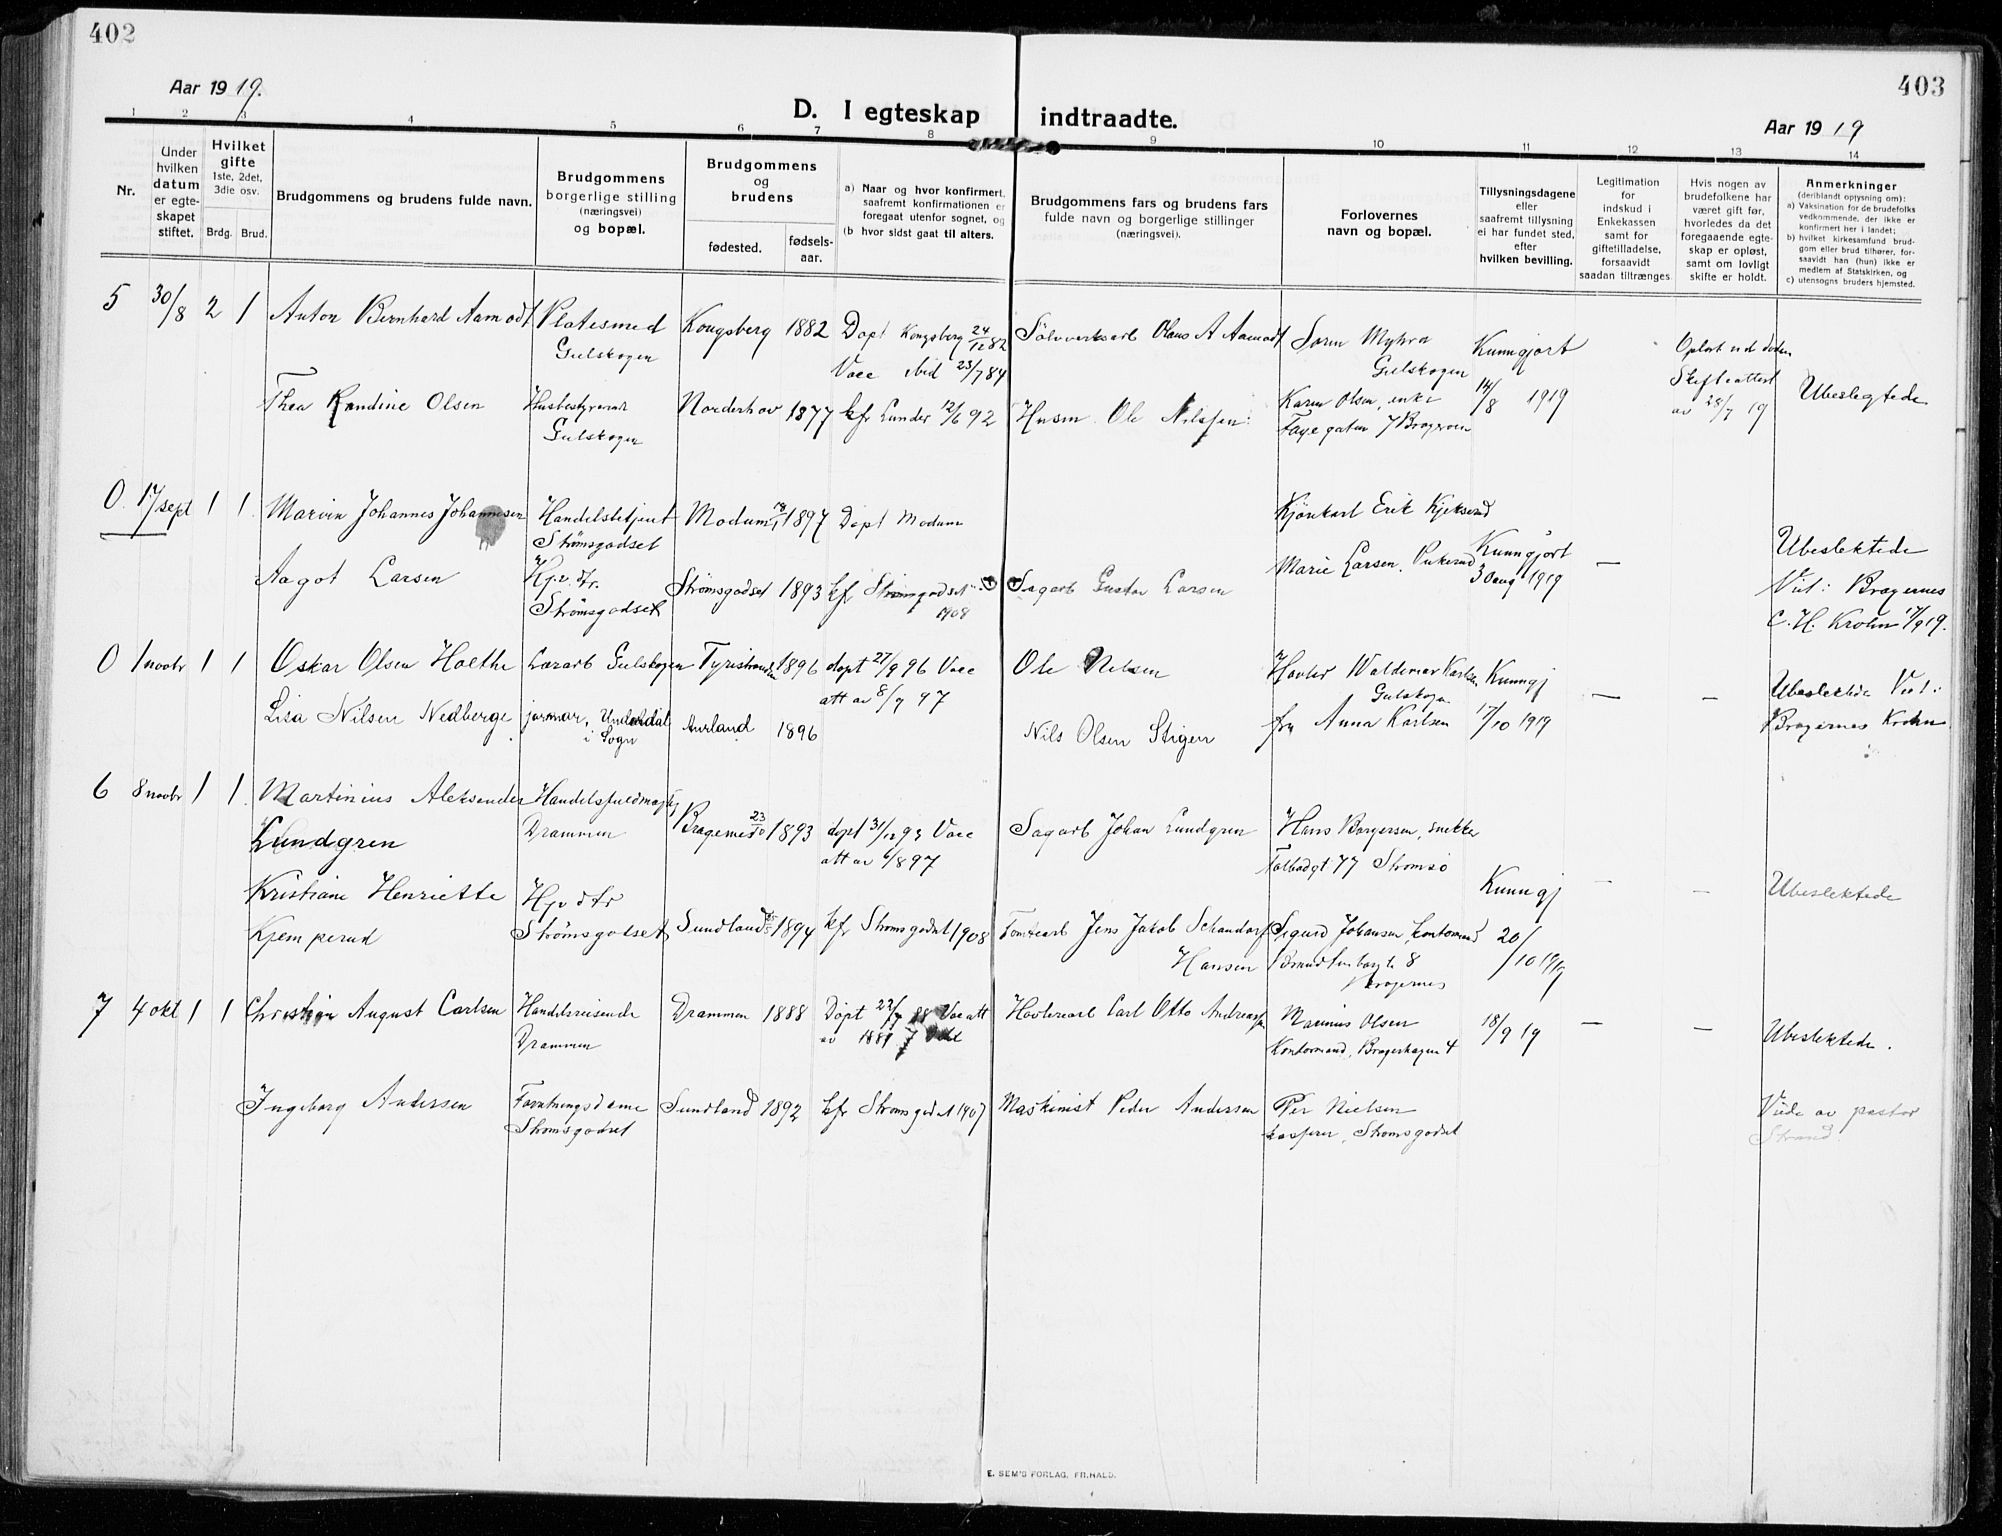 402
403
Aar 1919.
D. I egteskap indtraadte.
Aar 1919
1 2 3 4 5 6 7 8 9 10 11 12 13 14
Nr.
Under hvilken datum er egteskapet stiftet.
Hvilket gifte 1ste, 2det, 3die osv.
Brdg. Brud.
Brudgommens og brudens fulde navn.
Brudgommens borgerlige stilling (næringsvei) og bopæl.
Brudgommens og brudens
fødested. fødselsaar.
a) Naar og hvor konfirmert, saafremt konfirmationen er foregaat utenfor sognet, og
(b hvor sidst gaat til alters.
Brudgommens fars og brudens fars fulde navn og borgerlige stillinger (næringsvei).
Forlovernes navn og bopæl.
Tillysningsdagene eller saafremt tillysning ei har fundet sted, efter hvilken bevilling.
Legitimation for indskud i Enkekassen samt for giftetilladelse, forsaavidt saadan tiltrænges.
Hvis nogen av brudefolkene har været gift før, hvorledes da det foregaaende egteskap er opløst, samt om lovligt skifte er holdt.
Anmerkninger (deriblandt optysning om):
a) Vaksination for de brudefolks vedkommende, der ikke er konfirmert her i landet;
b) hvilket kirkesamfund brudgom eller brud tilhører, forsaavidt han (hun) ikke er medlem af Statskirken, og
c) utensogns bruders hjemsted.
5 30/8 2 1 Anton Bernhard Aamodt Platesmed Gulskogen Kongsberg 1882 Døpt Kongsberg 24/12 82 Vacc ibid 23/7 84 Sølvverksarb Olaus A Aamodt Søren Myhra Gulskogen Kunngjort 14/8 1919 Opløst ved døden Skifteattest av 28/7 19 Ubeslegtede
Thea Randine Olsen Husbestyrerinde Gulskogen Norderhov 1877 kfr Lunder 12/6 92 Husm. Ole Nilssen Karen Olsen, enke Fayegaten 7 Bragernes
0 17/sept 1 1 Marvin Johannes Johannesen Handelsbetjent Strømsgodset Modum 1897 Døpt Modum Kjørekarl Erik Kjekserud Kunngjort 30 aug 1919 — Ubeslektede
Aagot Larsen Hjv. dtr. Strømsgodset Strømsgodset 1893 kfr Strømsgodset 1908 Sagarb Gustav Larsen Marie Larsen, Pukerud Viet: Bragernes C. H. Krohn 17/9 19.
0 1 novbr 1 1 Oskar Olsen Holthe Lærarb Gulskogen Tyristranden 1896 døpt 27/9 96 Vacc att av 8/9 97 Ole Nelsen Høvler Waldemar Karlsen Gulskogen Kunngj 17/10 1919 — — Ubeslektede Viet:
Lisa Nilsen Nedberge jormor, Undredal i Sogn Aurland 1896 Nils Olsen Stigen fru Anna Karlsen Bragernes Krohn
6 8 novbr 1 1 Martinius Aleksander Lundgren Handelsfuldmægtig Drammen Bragernes 23/10 1893 døpt 31/12 93 Vacc att av 6/8 97 Sagarb Johan Lundgren Hans Borgersen, snekker Tolbodgt 77 Strømsø Kunngj 20/10 1919 — — Ubeslektede
Kristiane Henriette Kjemperud Hjv dtr Strømsgodset Sundland 1894 kfr Strømsgodset 1908 Tomtearb Jens Jakob Schandorf Hansen Sigurd Johansen, kontormand Brandtenborgt 8 Bragernes
7 4 okt 1 1 Christian August Carlsen Handelsreisende Drammen Drammen 1888 Døpt 22/7 88 Vac att av 1889 7 Okt Høvlerearb Carl Otto Andreassen Marius Olsen Kontormand, Bragerhagen 4 18/9 19 — — Ubeslektede.
Ingeborg Andersen Forretningsdame Strømsgodset Sundland 1892 kfr Strømsgodset 1907 Maskinist Peder Andersen Per Nielsen kasserer, Strømsgodset Viede av pastor Strand.
E. SEM'S FORLAG, FR.HALD.